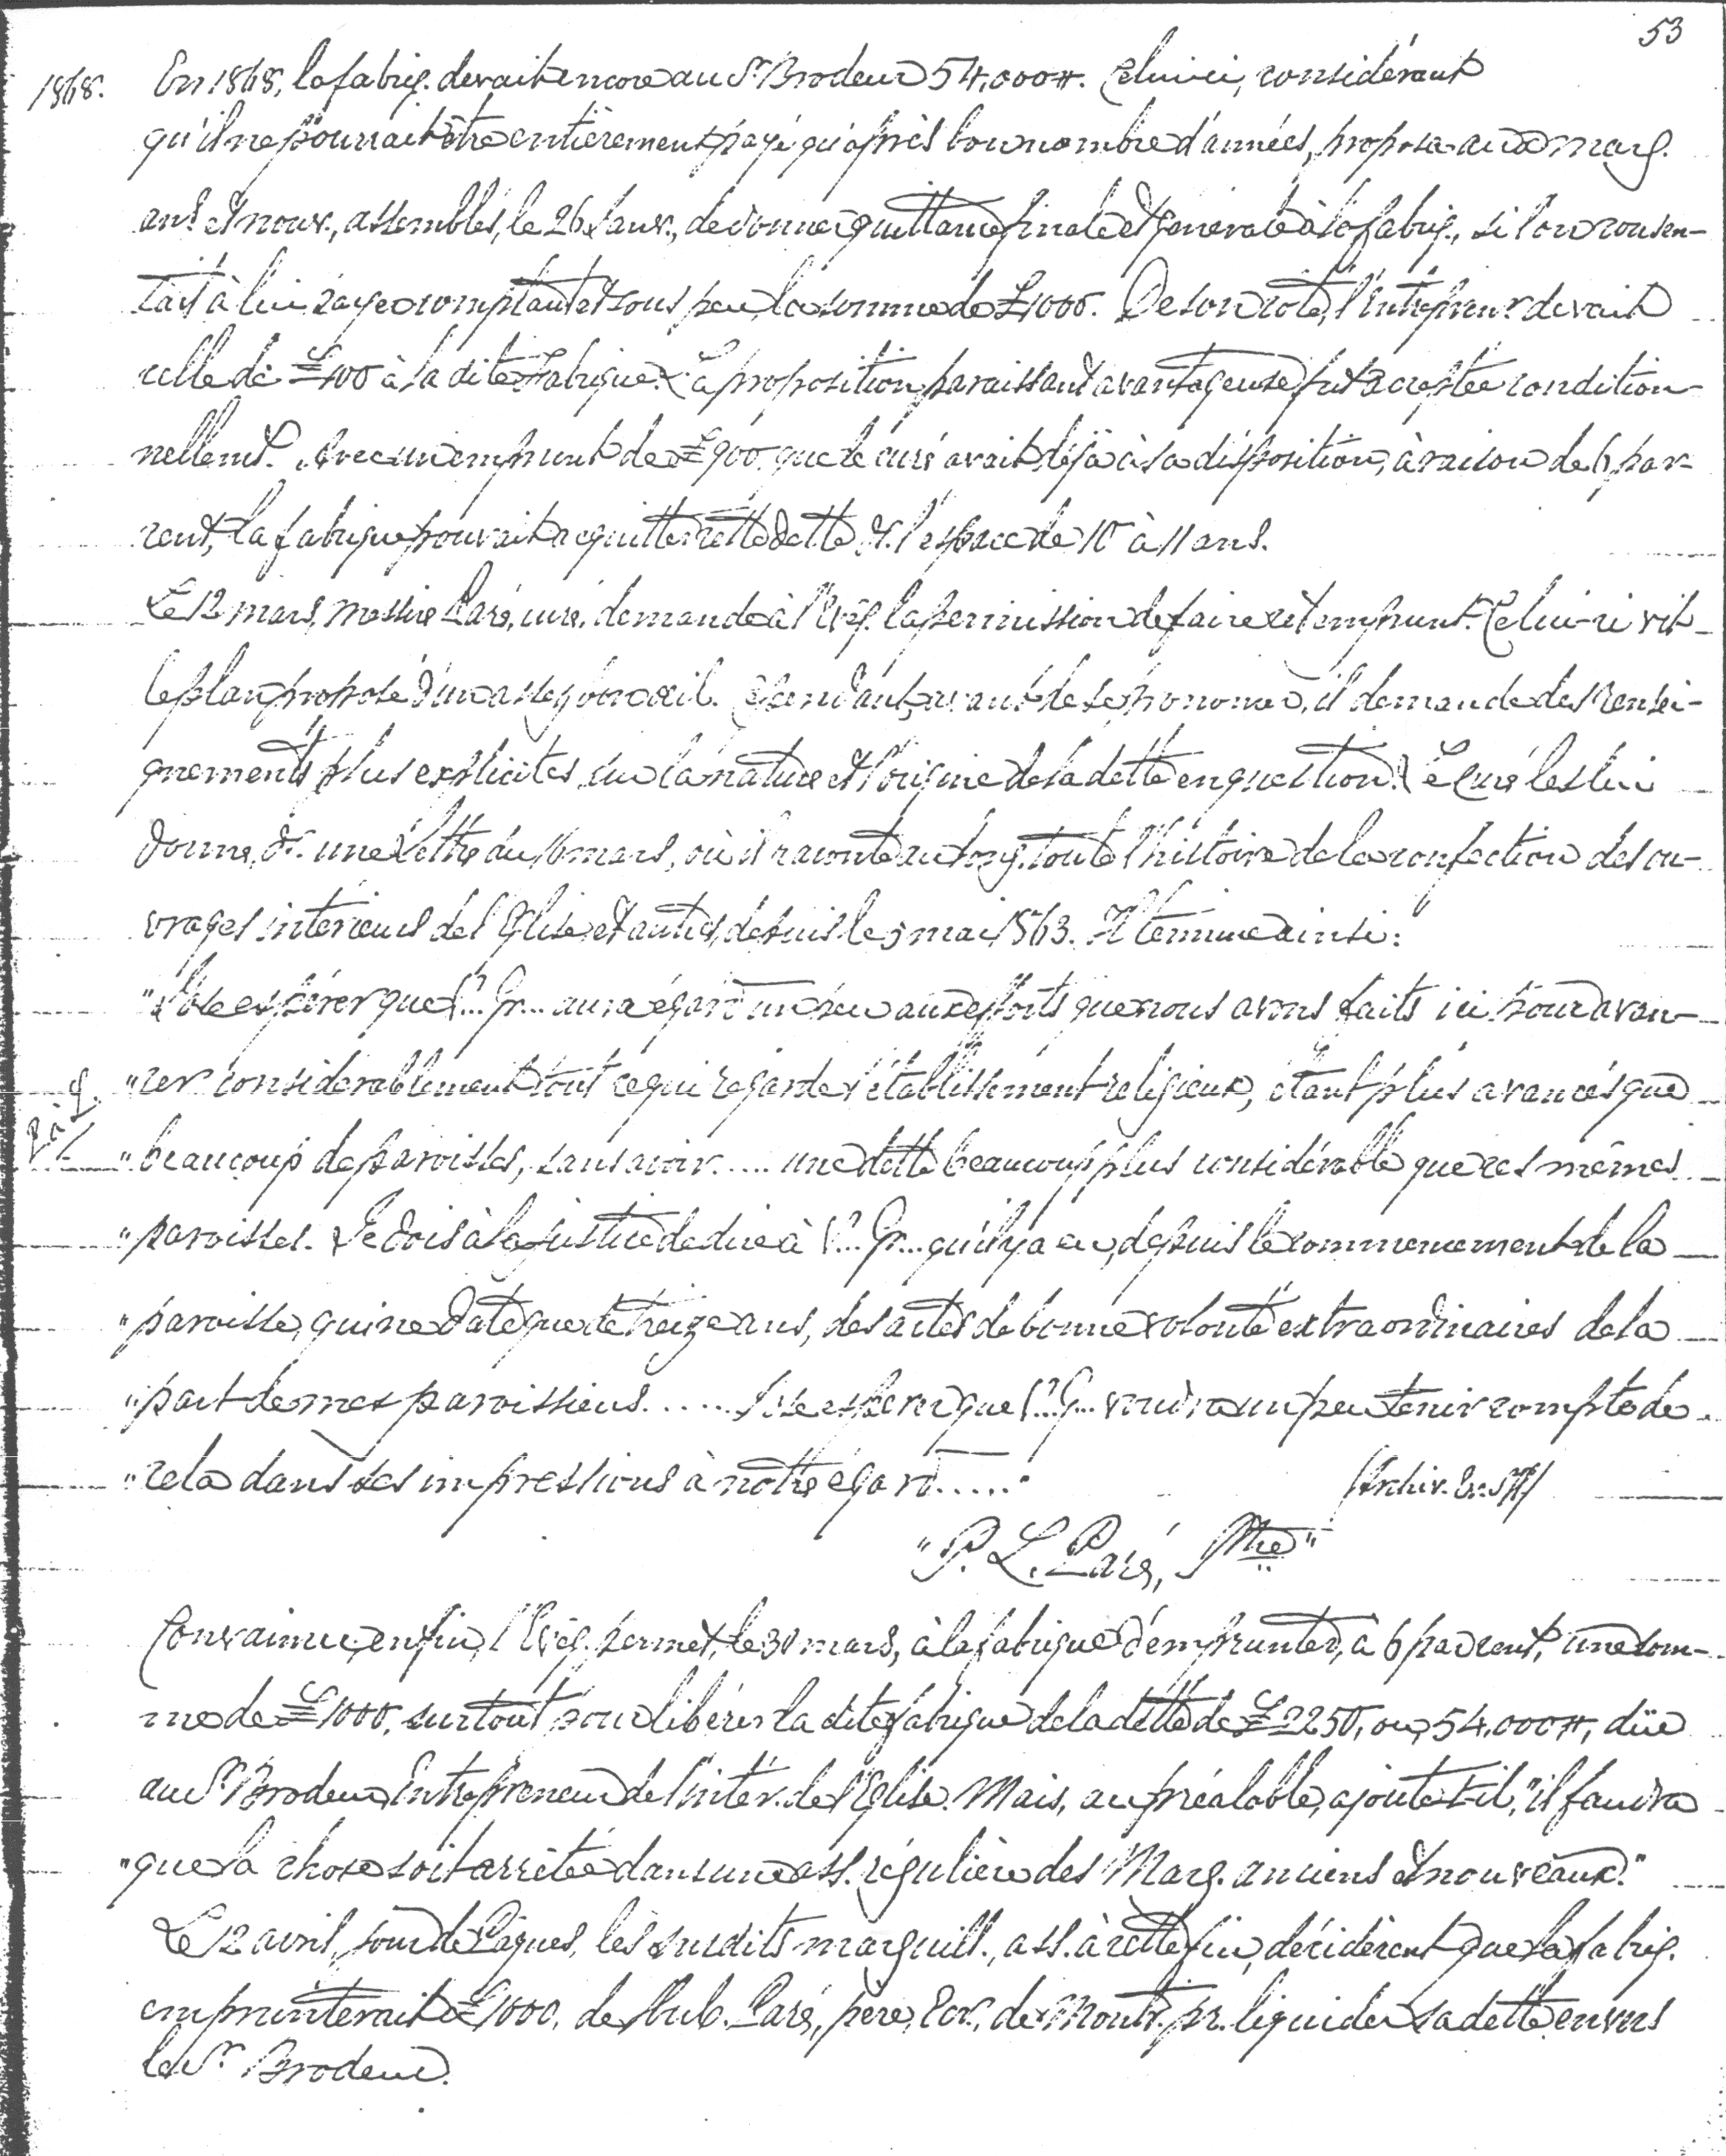 53
1868. En 1868, la fabriq. devait encore au Sr Brodeur 54,000#. Celui-ci, considérant
qu'il ne pourrait être entièrement payé qu'après bon nombre d'années, proposa aux marg.
anc. et nouv., assemblés, le 26 Janv., de donner quittance finale et générale à la fabriq., si l'on consen-
tait à lui payer comptant et sous peu la somme de £1000. De son côté, l'Entrepreneur devait
celle de £100 à la dite Fabrique. La proposition paraissant avantageuse fut acceptée condition-
nellemt. Avec un emprunt de £900 que le curé avait déjà à sa disposition, à raison de 6 par
cent, la fabrique pouvait acquitter cette dette ds. l'espace de 10 à 11 ans.
Le 12 mars, messire Paré, curé, demande à l'Evêq. la permission de faire cet emprunt. Celui-ci vit
le plan proposé d'un assez bon œil. Cependant, avant de se prononcer, il demande des rensei-
gnements plus explicites sur la nature et l'origine de la dette en question. Le Curé les lui
donne, ds. une lettre du 16 mars, où il raconte au long toute l'histoire de la confection des ou-
vrages intérieurs de l'Eglise, et autres, depuis le 5 mai 1863. Il termine ainsi:
"J'ose espérer que V... Gr... aura égard un peu aux efforts que nous avons faits ici pour avan-
"cer considérablement tout ce qui regarde l'établissement religieux, étant plus avancés que
"beaucoup de paroisses, sans avoir..... une dette beaucoup plus considérable que ces mêmes
"paroisses. Je dois à la justice de dire à V... Gr... qu'il y a eu, depuis le commencement de la
"paroisse, qui ne date que de treize ans, des actes de bonne volonté extraordinaires de la
"part de mes paroissiens....... J'ose espérer que V... G... voudra un peu tenir compte de
"cela dans ses impressions à notre égard.....
/Archiv. Ev. StH/
"P. L. Paré, Ptre"
Convaincu, enfin, l'Evêq. permet, le 30 mars, à la fabrique d'emprunter, à 6 par cent, une som-
me de £1000, surtout pour libérer la dite fabrique de la dette de £2250, ou 54,000#, düe
au Sr Brodeur, Entrepreneur de l'intér. de l'Eglise. Mais, au préalable, ajoute-t-il, "il faudra
"que la chose soit arrêtée dans une ass. régulière des Marg. anciens et nouveaux."
Le 12 avril, jour de Pâques, les susdits marguill., ass. à cette fin, décidèrent que la fabriq.
emprunterait £1000, de Hub. Paré, père, Ecr., de Montr. pr. liquider sa dette envers
le Sr Brodeur.